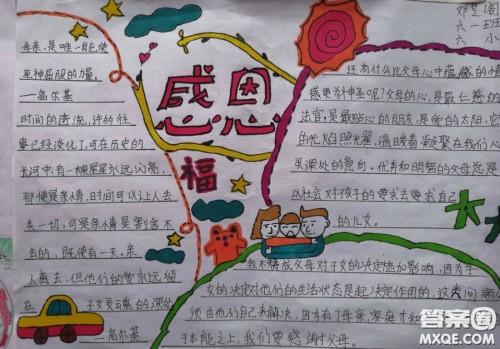 感恩
福
母亲,是唯一能使
死神屈服的力量。
—高尔基
时间的清流,许纷往
事已经淡化了,可在历史的
长河中,有一颗星星永远闪亮,
那便是亲情,时间可以让人丢
失一切,可是亲情是割舍不
去的,既使有一天,亲
人离去,但他们的爱永远留
在子女灵魂的深处
—高尔基
邓
六一班
六小
还有什么比父母心中蕴藏的情
感更为神圣呢?父母的心,是最仁慈的
法官,是最贴心的朋友,是爱的太阳,它
的光焰照光耀,温暖着凝聚在我们心
灵深处的意向。优秀和明智的父母总是
以社会对孩子的要求去要求自己
的儿女。
我不赞成父母对子女的决定施加影响,因为子
女的决定对他们的生活状态是起决定作用的,这类问题
须由他们自己来解决,因为有了母亲,家庭才和
于本能之上,我们要感谢父母。
答案圈
MXQE.COM